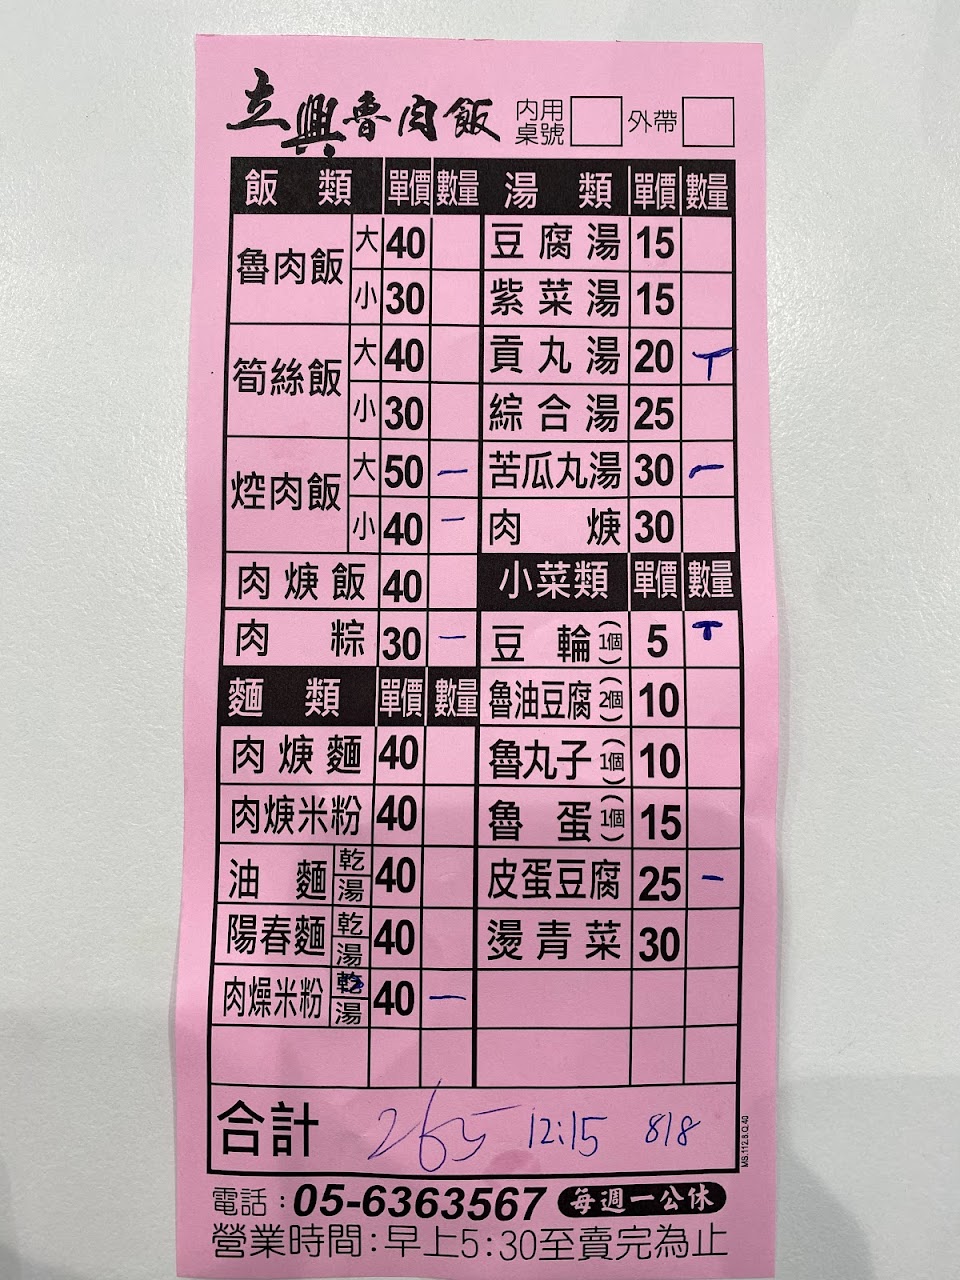 立興魯肉飯 內用桌號 外帶
飯類 單價 數量 湯類 單價 數量
魯肉飯 大 40 豆腐湯 15
小 30 紫菜湯 15
筍絲飯 大 40 貢丸湯 20 丅
小 30 綜合湯 25
焢肉飯 大 50 一 苦瓜丸湯 30 一
小 40 一 肉焿 30
肉焿飯 40 小菜類 單價 數量
肉粽 30 一 豆輪(1個) 5 丅
麵類 單價 數量 魯油豆腐(2個) 10
肉焿麵 40 魯丸子(1個) 10
肉焿米粉 40 魯蛋(1個) 15
油麵 乾 湯 40 皮蛋豆腐 25 一
陽春麵 乾 湯 40 燙青菜 30
肉燥米粉 乾 湯 40 一
合計 265 12:15 818
MS:112.8.Q.40
電話:05-6363567 每週一公休
營業時間:早上5:30至賣完為止